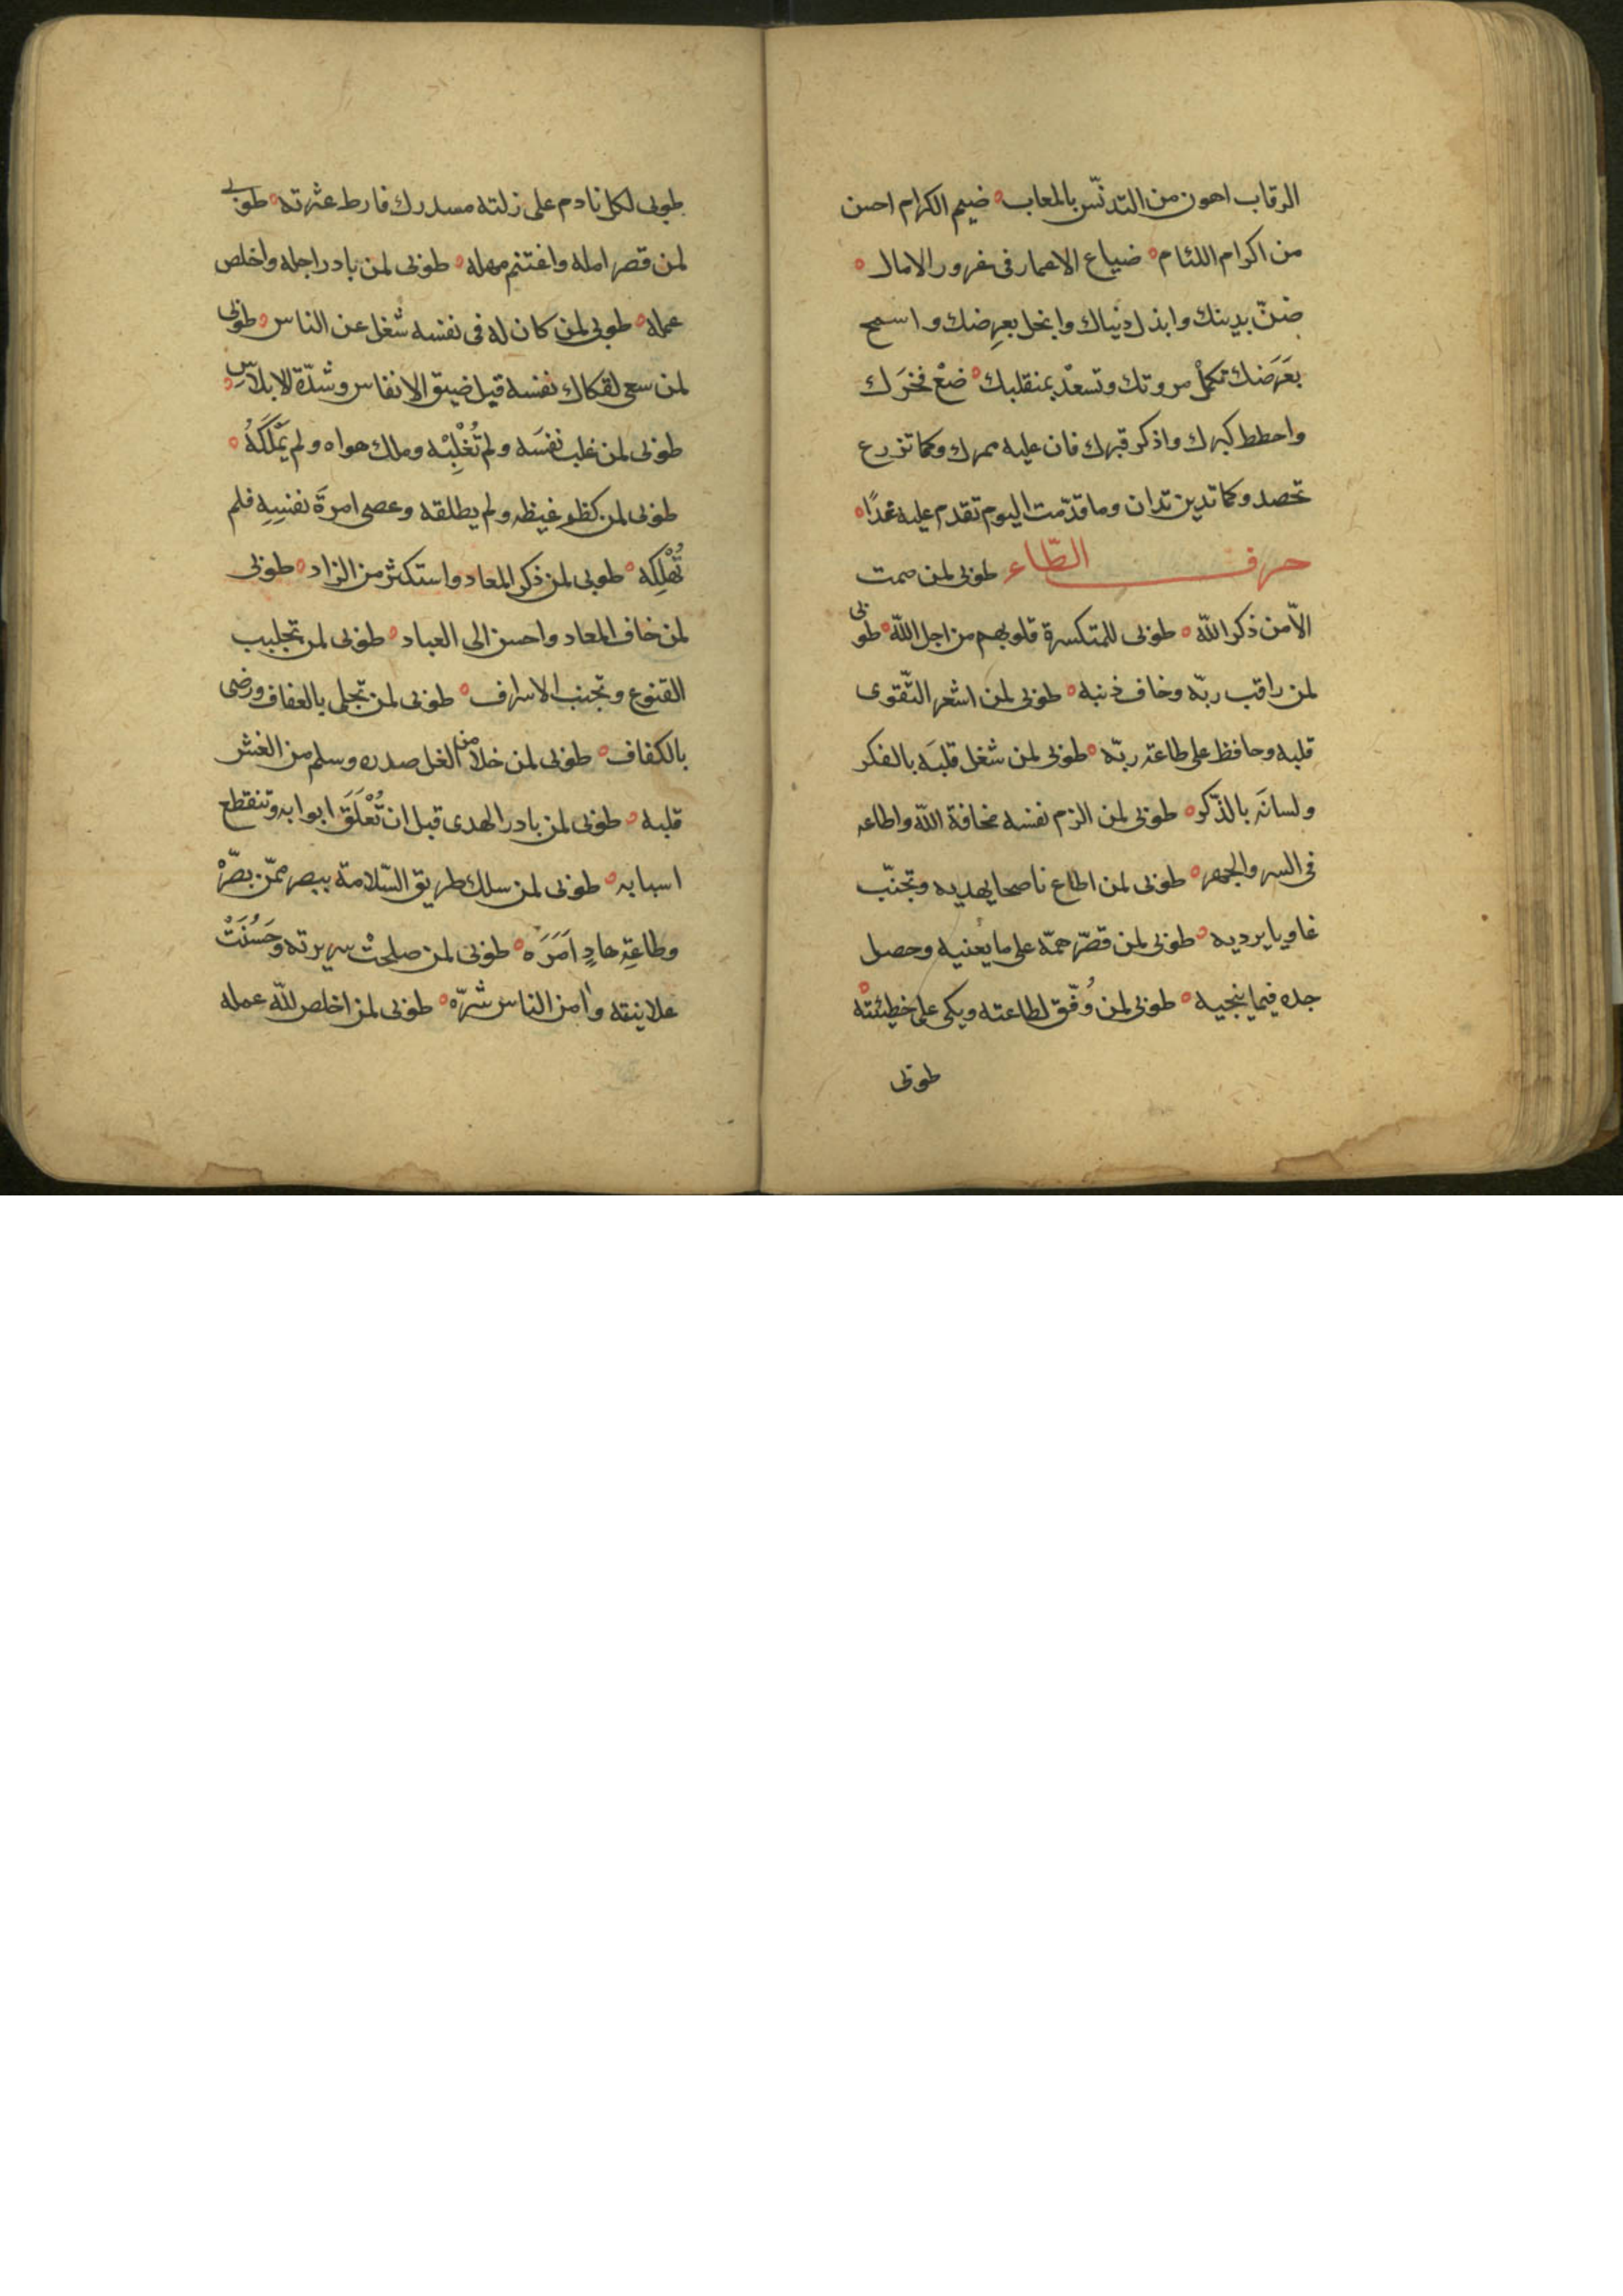 الرقاب اهون من التدنّس بالمعاب ضيم الكرام احسن
من اكرام اللئام ضياع الاعمار فى غرور الامال
ضنّ بدينك وابذل دنياك وابخل بعرضك واسمح
بعَرَضك تكمل مروتك وتسعد بمنقلبك ضعْ فخرَك
واحطط كبرك واذكر قبرك فان عليه ممرك وكما تزرع
تحصد وكما تدين تدان وما قدّمت اليوم تقدم عليه غدًا
حرف الطّاء طوبى لمن صمت
الاّ من ذكر اللّه طوبى للمتكسرة قلوبهم من اجل اللّه طوبى
لمن راقب ربّه وخاف ذنبه طوبى لمن اشعر التّقوى
قلبه وحافظ على طاعة ربّه طوبى لمن شغل قلبَه بالفكر
ولسانَه بالذّكر طوبى لمن الزم نفسه مخافة اللّه واطاعه
فى السر والجهر طوبى لمن اطاع ناصحا يهديه وتجنّب
غاويا يرديه طوبى لمن قصّر همّه على ما يعنيه وحصل
جده فيما ينجيه طوبى لمن وُفّق لطاعته وبكى على خطيئته
طوبى
طوبى لكل نادم على زلته مستدرك فارط عثرته طوبى
لمن قصر امله واغتنم مهله طوبى لمن بادر اجله واخلص
عمله طوبى لمن كان له فى نفسه شغل عن الناس طوبى
لمن سعى لفكاك نفسه قبل ضيق الانفاس وشدّة الابلاسِ
طوبى لمن غلب نفسَه ولم تُغْلِبْه وملك هواه ولم يَمْلَكَهُ
طوبى لمن كظم غيظه ولم يطلقه وعصى امرةَ نفسِهِ فلم
تُهْلِكه طوبى لمن ذكر المعاد واستكثر من الزاد طوبى
لمن خاف المعاد واحسن الى العباد طوبى لمن تجلبب
القنوع وتجنب الاسراف طوبى لمن تجلى بالعفاف ورضى
بالكفاف طوبى لمن خلا من الغل صدره وسلم من الغش
قلبه طوبى لمن بادر الهدى قبل ان تُغْلَقَ ابوابه وتنقطع
اسبابه طوبى لمن سلك طريق السّلامة ببصر ممّن بصّرْ
وطاعةِ هادٍ اَمَرَه طوبى لمن صلحتْ سريرته وحَسُنَتْ
علانيته وامن الناس شرّه طوبى لمن اخلص للّه عمله